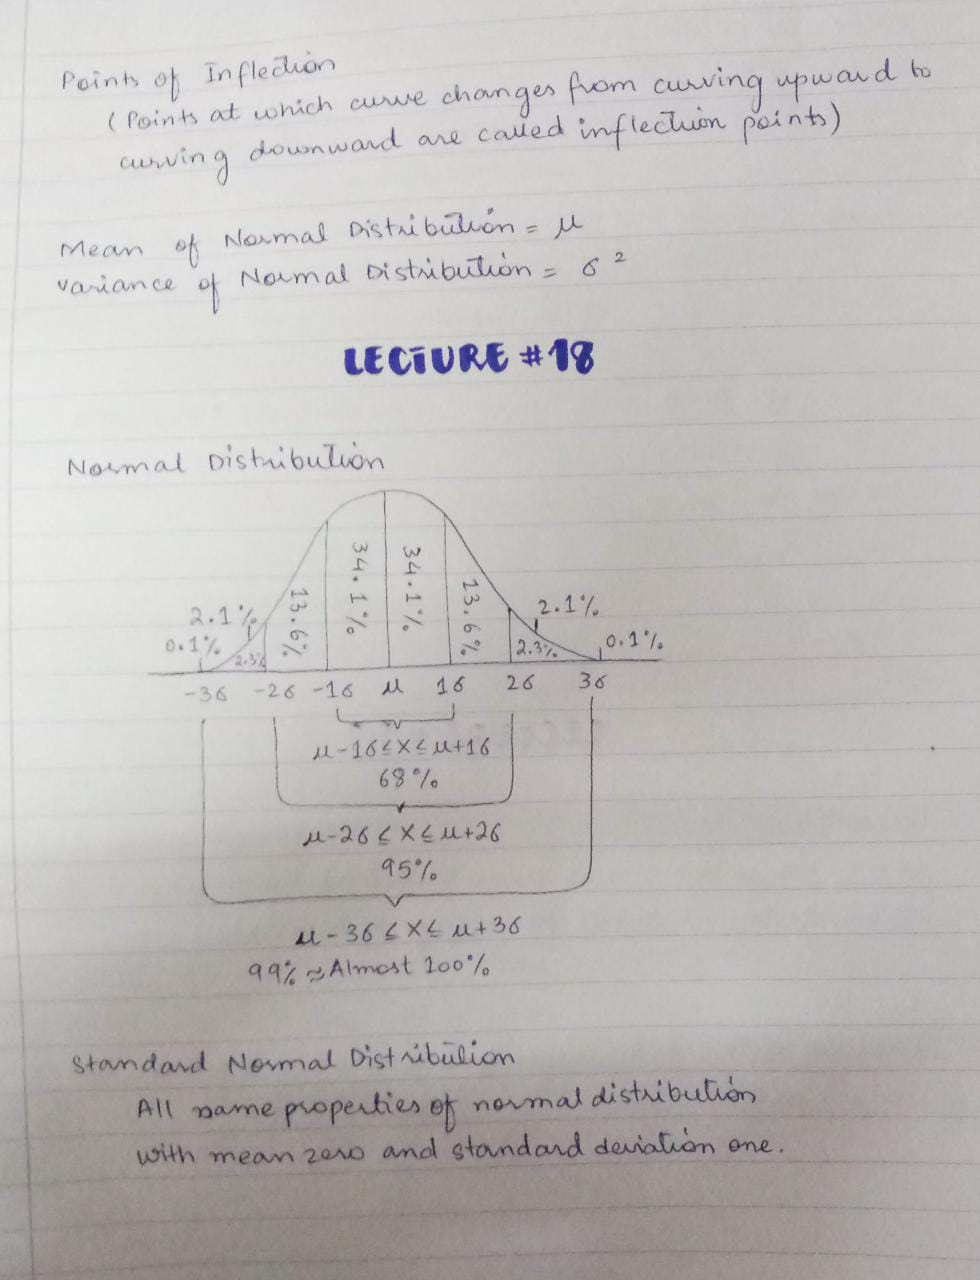 Points of Inflection
(Points at which curve changes from curving upward to
curving downward are called inflection points)
Mean of Normal Distribution = μ
variance of Normal Distribution = σ²
LECTURE #18
Normal Distribution
34.1% 34.1%
13.6% 13.6%
2.1% 2.1%
0.1% 2.3% 2.3% 0.1%
-3σ -2σ -1σ μ 1σ 2σ 3σ
μ-1σ≤X≤μ+1σ
68%
μ-2σ≤X≤μ+2σ
95%
μ-3σ≤X≤μ+3σ
99% ≈ Almost 100%
Standard Normal Distribution
All same properties of normal distribution
with mean zero and standard deviation one.